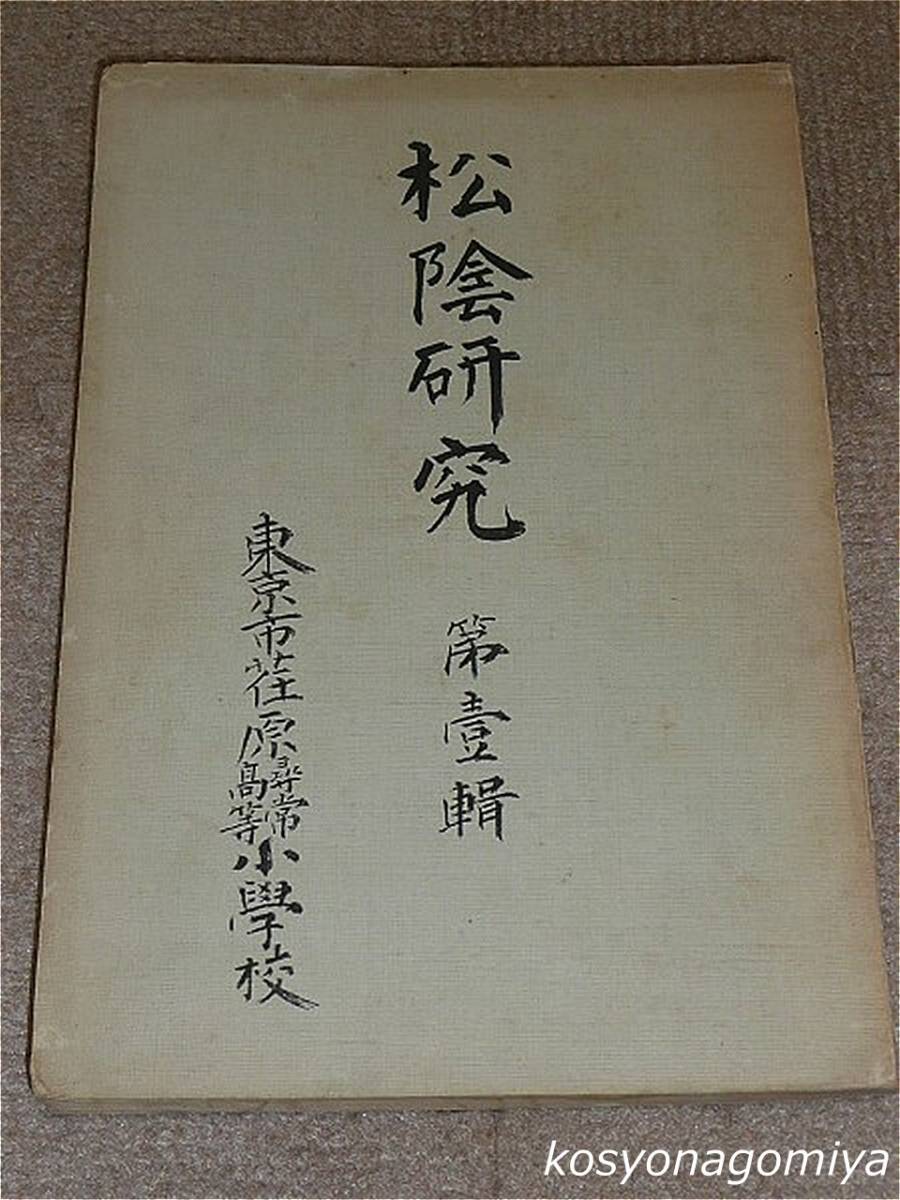 松陰研究 第壹輯
東京市荏原尋常高等小學校
kosyonagomiya